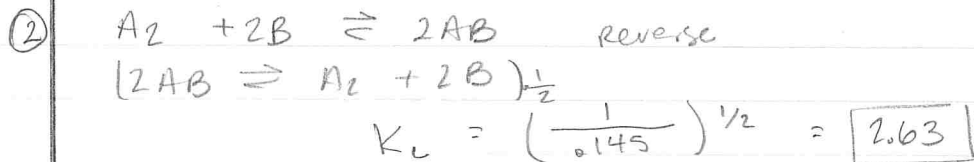 ② A₂ + 2B ⇌ 2AB reverse
(2AB ⇌ A₂ + 2B)·1/2
Kc = (1/.145)^1/2 = 2.63